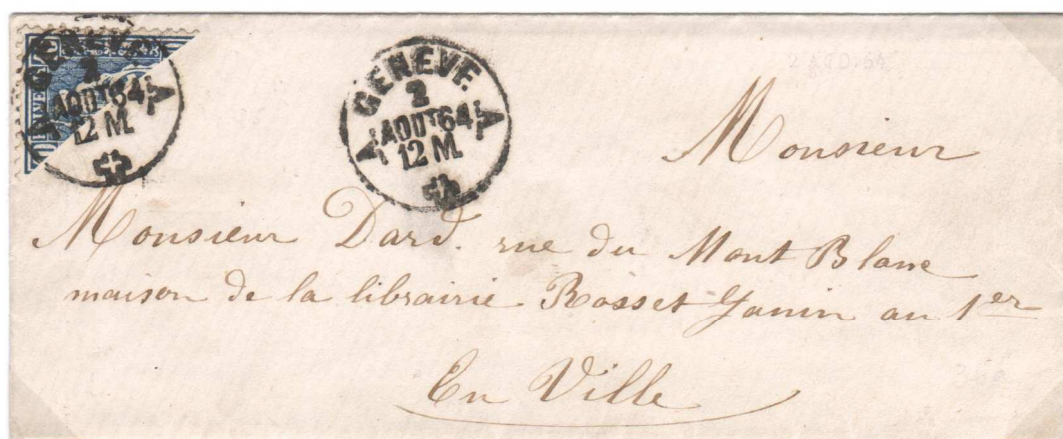 GENÈVE
2
AOUT 64
12 M.
A
GENÈVE.
2
A AOUT 64 A
12 M.
Monsieur
Monsieur Dard. rue du Mont Blanc
maison de la librairie Rosset Janin au 1er
En Ville